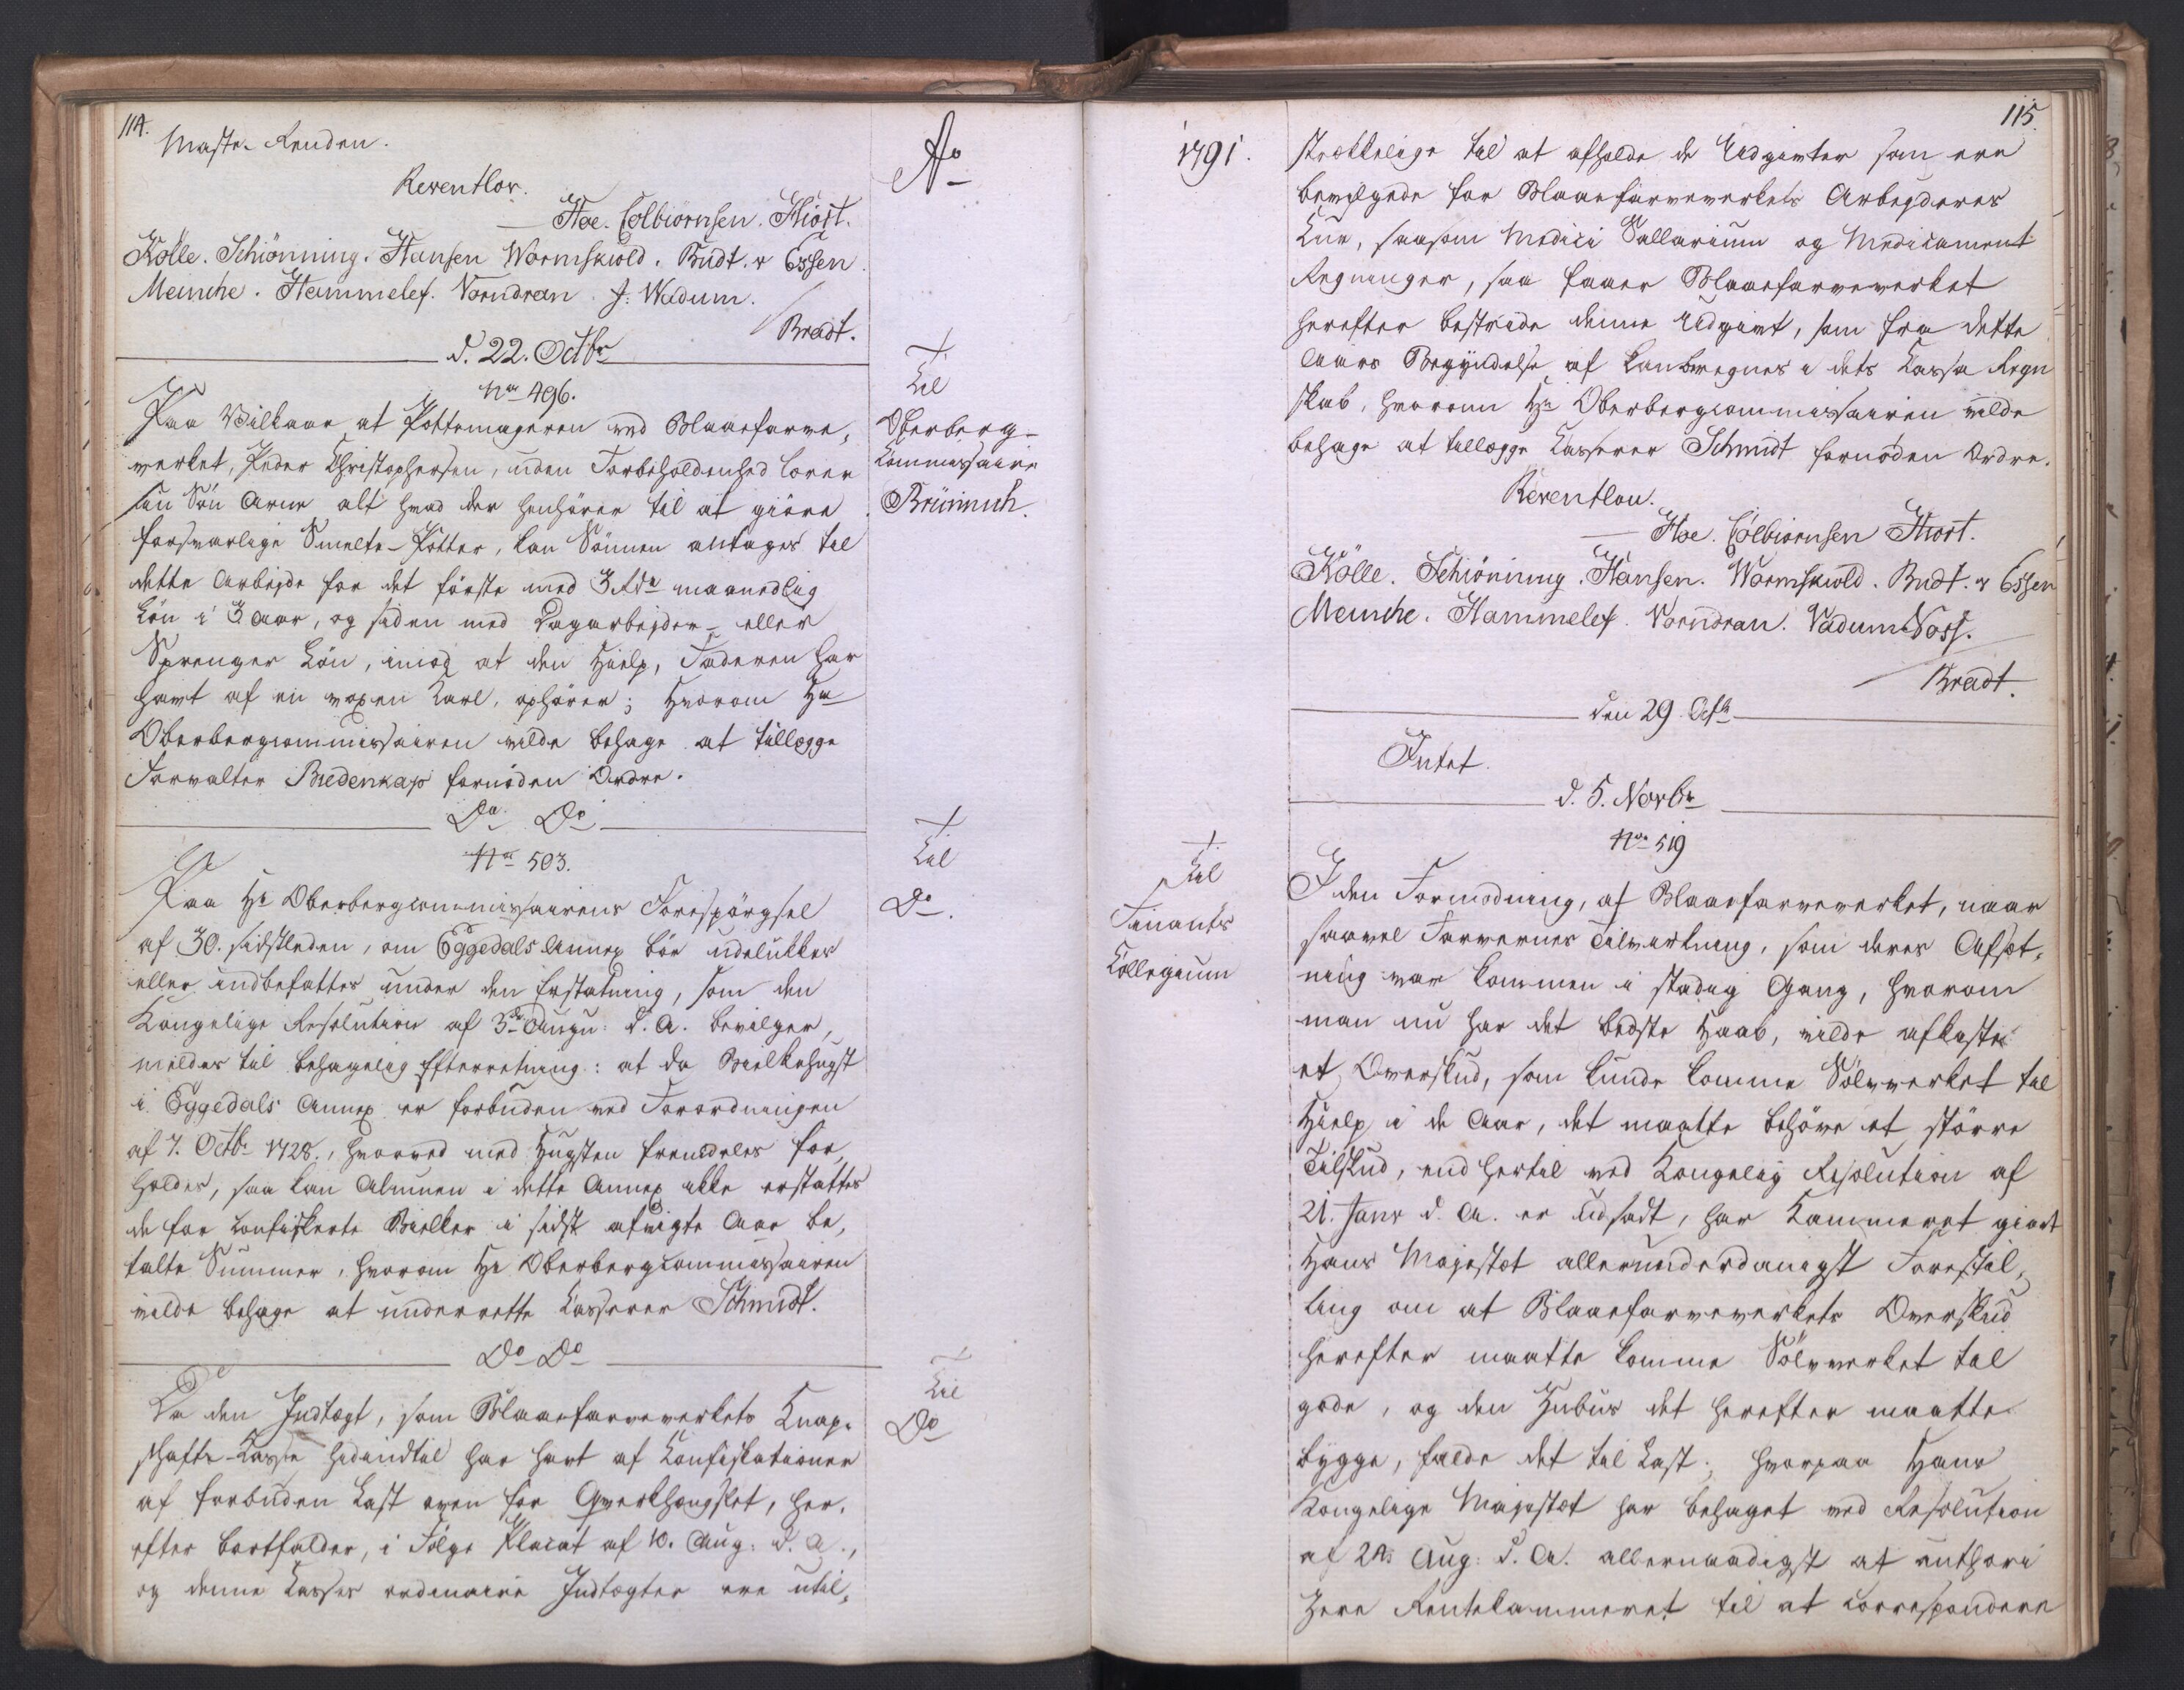 114.
Maste-Renden.
Reventlov.
Hoe. Colbiörnsen. Hiort.
Kölle. Schiönning. Hansen Wormskiold. Budt. v Essen
Meinche. Hammelef. Vorndran. J. Wadum.
Bradt.
d. 22. Octbr
No 496.
Paa Vilkaar at Pottemageren ved Blaaefarve-
verket, Peder Christophersen, uden Forbeholdenhed lærer
sin Sön Arne alt hvad der henhörer til at giöre
forsvarlige Smelte-Potter, kan Sönnen antages til
dette Arbejde for det förste med 3 Rdr maanedlig
Lön i 3 Aar, og siden med Dagarbejder- eller
Sprenger Lön, imod at den Hielp, Faderen har
havt af en voxen Karl, ophörer; hvorom Hr
Oberbergcommissairen vilde behage at tillægge
Forvalter Bredenkap fornöden Ordre.
Do Do
No 503.
Paa Hr Oberbergcommissairens Forespörgsel
af 30. sidstleden, om Eggedals Annex bör udelukkes
eller indbefattes under den Erstatning, som den
Kongelige Resolution af 3de Augu: d. A. bevilger,
meldes til behagelig Efterretning: at da Bielkehugst
i Eggedals Annex er forbuden ved Forordningen
af 7. Octbr 1728., hvorved med Hugsten fremdeles for-
holdes, saa kan Almuen i dette Annex ikke erstattes
de for confiskerte Bielker i sidst afvigte Aar be-
talte Summer, hvorom Hr Oberbergcommissairen
vilde behage at underrette Casserer Schmidt.
Do Do
Da den Indtægt, som Blaaefarveverkets Knap-
schafts-Casse hidindtil har havt af Confiskationer
af forbuden Last oven for Qverkhængslet, her-
efter bortfalder, i Fölge Placat af 10. Aug: d. A.,
og denne Casses ordinaire Indtægter ere util-
Ao
Til
Oberberg-
Commissaire
Brünnich.
Til
Do.
Til
Do
1791.
Til
Finants
Collegium
115.
strækkelige til at afholde de Udgivter som ere
bevilgede for Blaaefarveverkets Arbejderes
Cuur, saasom Medici Sallarium og Medicament
Regninger, saa faaer Blaaefarveverket
herefter bestride denne Udgivt, som fra dette
Aars Begyndelse af kan beregnes i dets Cassa Regn
skab, hvorom Hr Oberbergcommissairen vilde
behage at tillægge Casserer Schmidt fornöden Ordre.
Reventlou.
Hoe. Colbiörnsen Hiort.
Kölle. Schiönning. Hansen. Wormskiold. Budt. v Essen
Meinche. Hammelef. Vorndran. Vadum Voss.
Bradt.
den 29. Octbr
Intet.
d. 5. Novbr
No 519
I den Formodning, at Blaaefarveverket, naar
saavel Farvernes Tilvirkning, som deres Afsæt-
ning var kommen i stadig Gang, hvorom
man nu har det bedste Haab, vilde afkaste
et Overskud, som kunde komme Sölvverket til
Hielp i de Aar, det maatte behöve et större
Tilskud, end hertil ved Kongelig Resolution af
21. Janr d. A. er udsadt, har Kammeret giort
Hans Majestæt allerunderdanigst Forestil-
ling om at Blaaefarveverkets Overskud
herefter maatte komme Sölvverket til
gode, og den Zubus det herefter maatte
bygge, falde det til Last; hvorpaa Hans
Kongelige Majestæt har behaget ved Resolution
af 24. Aug: d. A. allernaadigst at authori
zere Rentekammeret til at correspondere